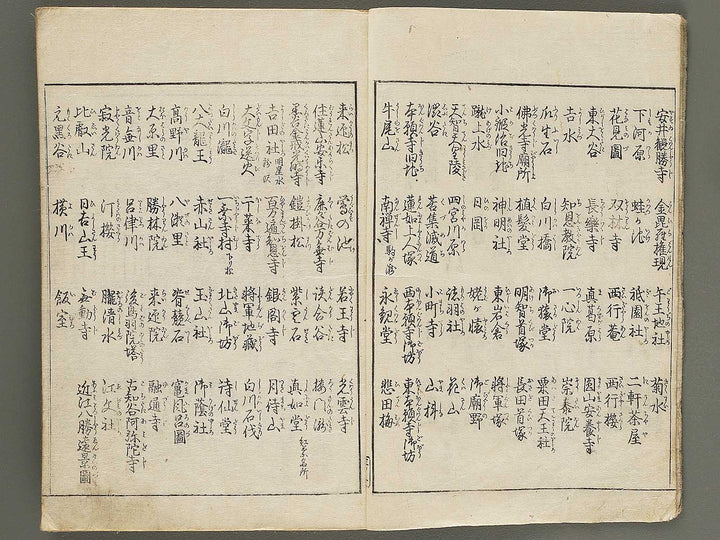 安井 勝寺 金毘羅権現 牛王地社 菊水
下河原 蛙ヶ池 祇園社 二軒茶屋
花見圖 双林寺 西行菴 西行櫻
東大谷 長樂寺 真葛原 圓山安養寺
吉水 知恩教院 一心院 崇泰院
瓜生石 白川橋 御猿堂 粟田天王社
佛光寺廟所 植髪堂 明智首塚 長田首塚
小鍛冶旧跡 神明社 東岩倉 将軍塚
蹴水 日岡 姥ヶ懐 御廟野
天智天皇陵 四宮川原 弦羽社 花山
澁谷 苦集滅道 小町寺 山科
本願寺旧地 蓮如上人塚 西本願寺御坊 東本願寺御坊
牛尾山 南禅寺 永観堂 悲田梅
来迎松 鶯の池 若王寺 光雲寺
住蓮山安楽寺 鹿ヶ谷 談合谷 樓門瀧
鎧掛松 紫雲石 真如堂 紅葉名所
吉田社 百万遍知恩寺 銀閣寺 月待山
千菜寺 将軍地蔵 白川石伐
白川瀧 一乗寺村 下り松 北山御坊 詩仙堂
八大龍王 赤山社 玉山社 御蔭社
髙野川 八瀬里 脊競石 竈風呂圖
大原里 勝林院 来迎院 融通寺
音無川 呂律川 後鳥羽院塔 古知谷阿弥陀寺
寂光院 汀櫻 朧清水 江文社
比叡山 日吉山王 無動寺 近江八勝遠景圖
元黒谷 横川 飯室